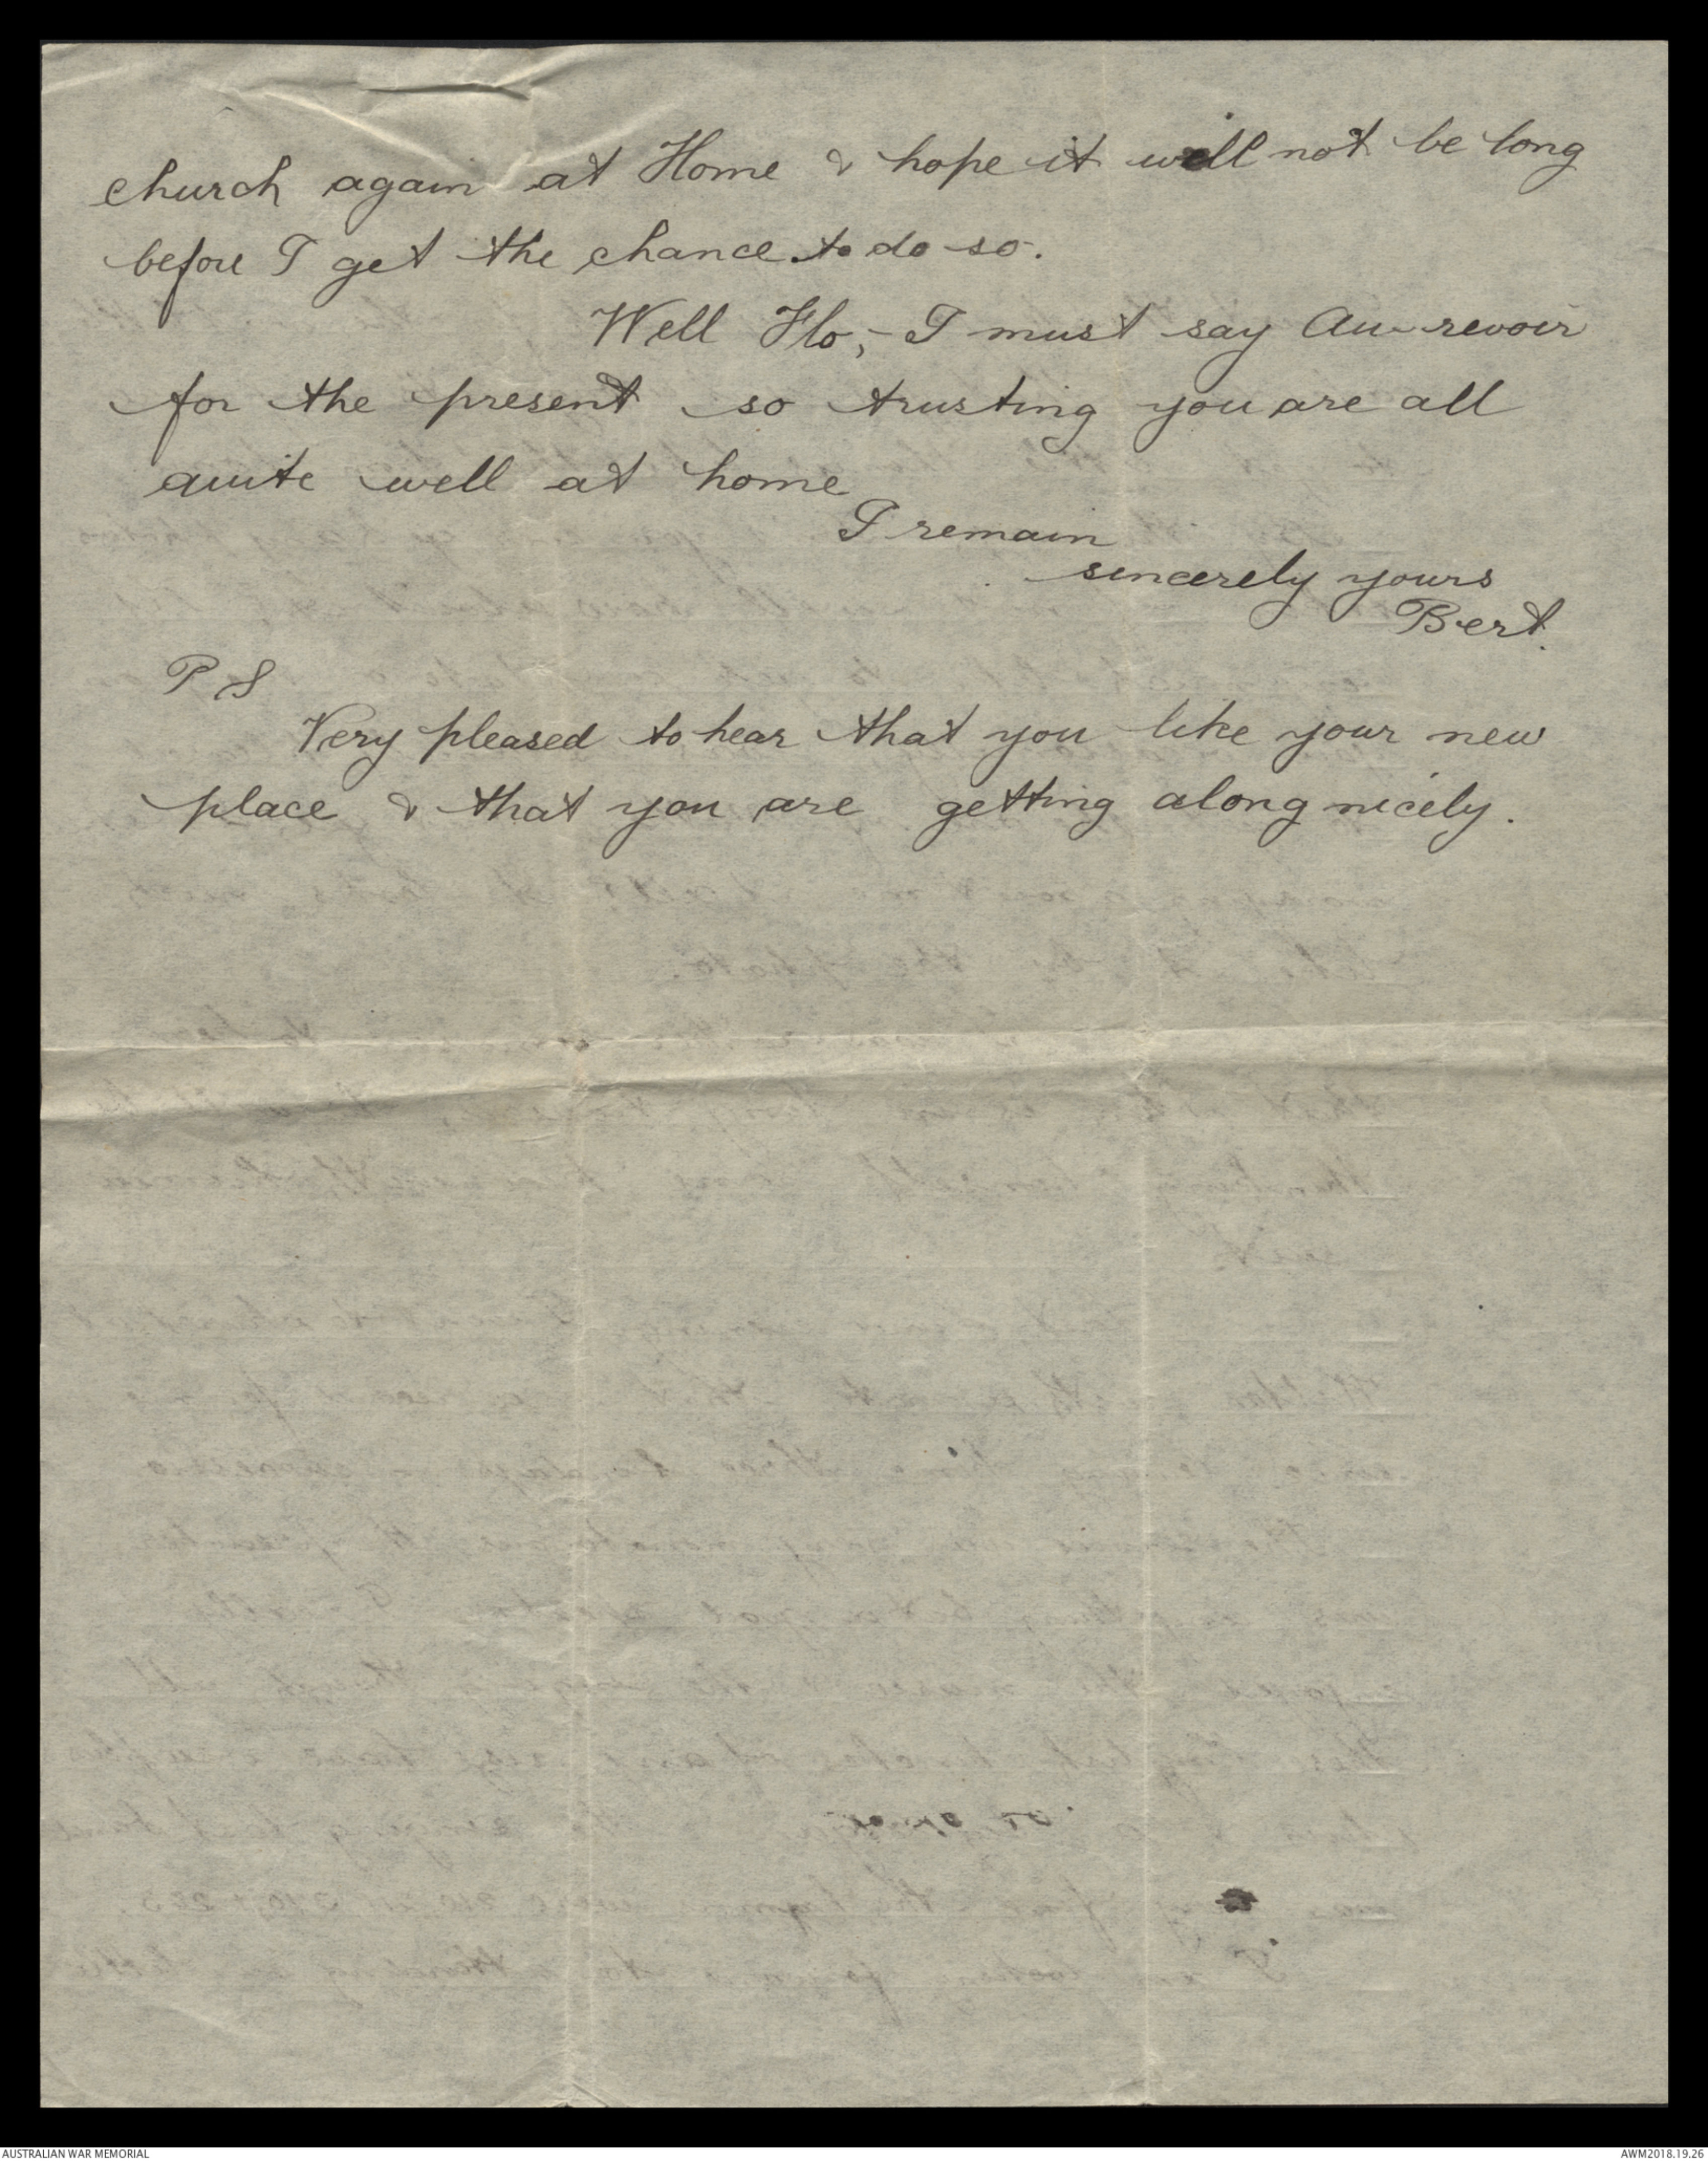 church again at Home & hope it will not be long
before I get the chance to do so.
Well Flo,- I must say Au-revoir
for the present so trusting you are all
quite well at home
I remain
sincerely yours
Bert.
P S
Very pleased to hear that you like your new
place & that you are getting along nicely.
AUSTRALIAN WAR MEMORIAL
AWM2018.19.26